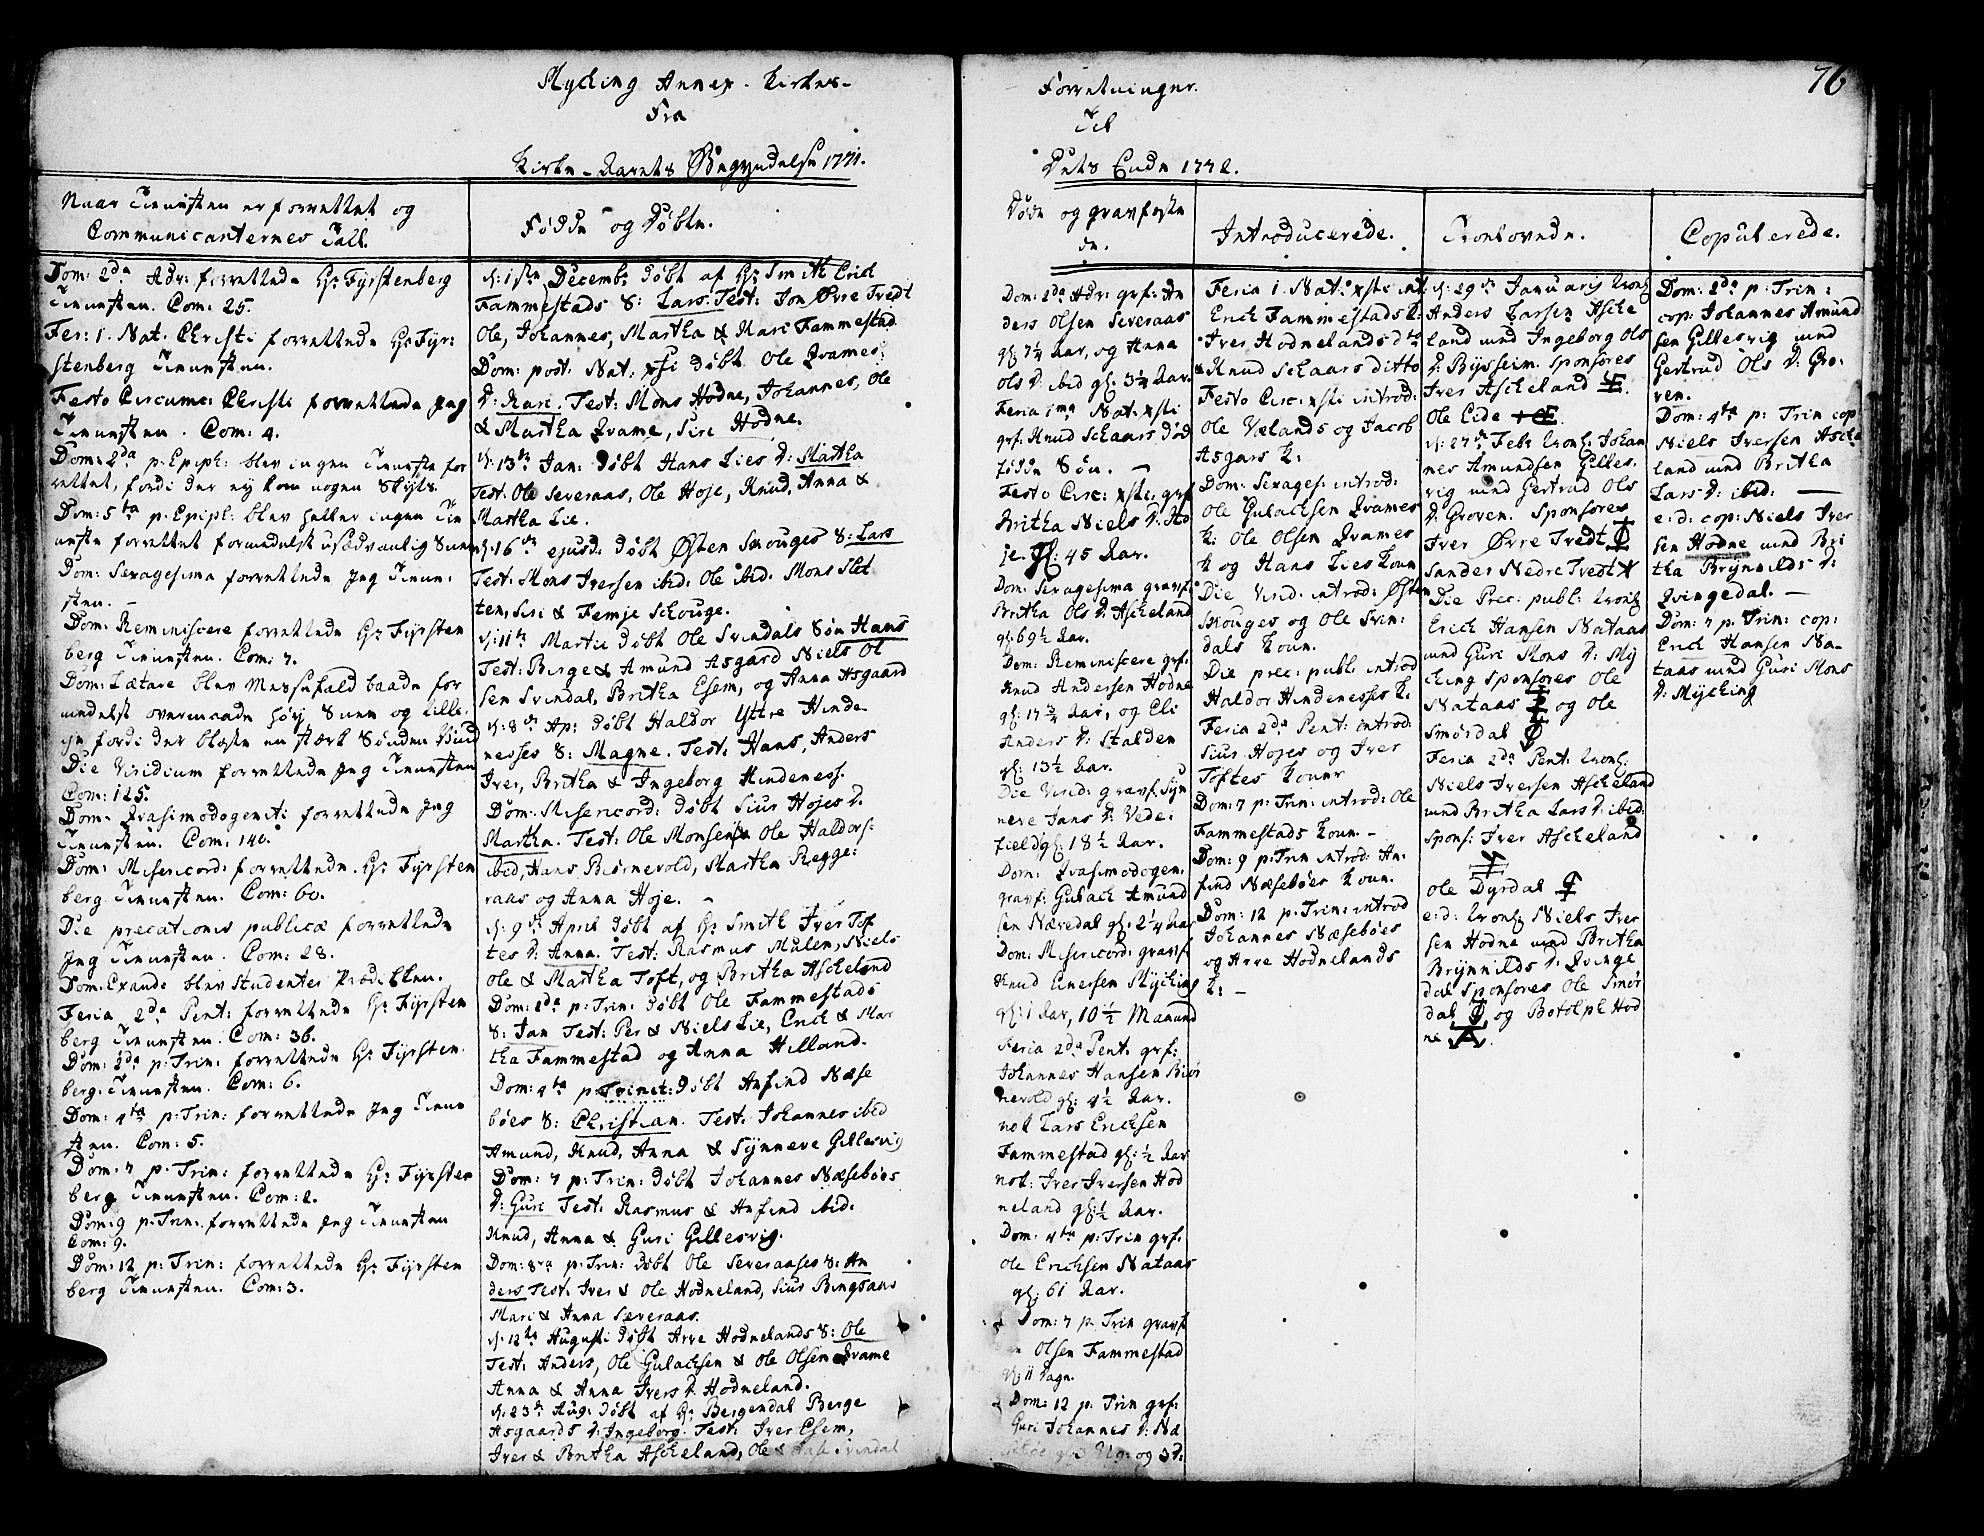 Mycking Annex-Kirkes-
Fra
Kirke-Aarets Begyndelse 1771.
Naar Tienesten er forrettet og
Communicanternes Tall.
Dom: 2da Adv: forrettede Hr: Fyrstenberg
Tienesten. Com: 25.
Fer: 1. Nat. Christi forrettede Hr Fyr:
stenberg Tienesten.
Festo Circumc: Christi forrettede Jeg
Tienesten. Com: 4.
Dom: 2da p: Epiph: blev ingen Tieneste for
rettet, fordi der ey kom nogen Skyts.
Dom: 5ta p: Epiph: blev heller ingen Tie
neste forrettet formedelst usædvanlig Snee
Dom: Sexagesima forrettede Jeg Tiene:
sten. -
Dom: Reminiscere forrettede Hr: Fyrsten
berg Tienesten. Com: 7.
Dom: Lætare blev Messefald baade for
medelst overmaade høy Snee og tillige
fordi der blæste en stærk Sønden Vind
Die Viridium forrettede Jeg Tienesten
Com: 125.
Dom: Qvasimodogenit: forrettede Jeg
Tienesten. Com: 140.
Dom: Misericord: forrettede Hr: Fyrsten
berg Tienesten. Com: 60.
Die precationis publicæ forrettede
Jeg Tienesten. Com: 28.
Dom: Exaude blev Studenter Prædiken.
Feria 2da Pent: forrettede Hr: Fyrsten
berg Tienesten. Com: 36.
Dom: 2da p: Trin: forrettede Hr: Fyrsten
berg: Tienesten. Com: 6.
Dom: 4ta p: Trin: forrettede Jeg Tiene
sten. Com: 5.
Dom: 7 p: Trin: forrettede Hr: Fyrsten
berg Tienesten. Com: 2.
Dom: 9 p: Trin: forrettede Jeg Tienesten
Com: 9.
Dom: 12 p: Trin: forrettede Hr: Fyrsten
berg Tienesten. Com: 3.
Fødde og Døbte.
d: 1ste Decembr døbt af Hr: Smith Erich
Fammestads S: Lars. Test: Jon Øvre Tvedt
Ole, Johannes, Martha & Kari Fammestad
Dom: post. Nat: xsti døbt Ole Qvames
D: Kari. Test: Mons Hodne, Johannes, Ole
& Martha Qvame, Siri Hodne.
d: 13de Jan: døbt Hans Lies D: Martha
Test: Ole Severaas, Ole Hoje, Knud, Anna &
Martha Lie.
d: 16de ejusd: døbt Østen Skouges S: Lars
Test: Mons Iversen ibid: Ole ibid. Mons Slet
ten, Siri & Femje Schouge.
d: 11te Martii døbt Ole Svindals Søn Hans
Test: Birge & Amund Asgard Niels Ol
sen Svindal, Britha Esem, og Anna Asgaard
d: 8de Ap: døbt Haldor Yttre Hinde
nesses S: Magne. Test: Hans, Anders
Iver, Britha & Ingeborg Hindeness.
Dom: Misericord: døbt Siur Hojes D.
Martha. Test: Ole Monsen, Ole Haldors:
ibid, Hans Biørnevold, Martha Regge:
raas og Anna Hoje. -
d: 9de April døbt af Hr: Smith Iver Tof
tes D: Anna. Test: Rasmus Mulen, Niels
Ole & Martha Toft, og Britha Ascheland
Dom: 2da p: Trin: døbt Ole Fammestads
S: Jan Test: Per & Niels Lie, Erich & Mar
tha Fammestad og Anna Hilland.
Dom: 4ta p: Trinit: døbt Anfind Næse
bøes S: Christian. Test: Johannes ibid
Amund, Knud, Anna & Synneve Gillesvig
Dom: 7 p: Trin: døbt Johannes Næsebøes
D: Guri Test: Rasmus & Anfind ibid:
Knud, Anna & Guri Gillesvig.
Dom: 8va p: Trin: døbt Ole Severaases S: An
ders Test: Iver & Ole Hodneland, Siur Bingsaas
Mari & Anna Severaas.
d: 12te Augusti døbt Arve Hodnelands S: Ole
Test: Anders, Ole Gulachsen & Ole Olsen Qvame
Anna & Anna Ivers D. Hodneland.
d: 23de Aug: døbt af Hr: Bergendal Berge
Asgaards D: Ingeborg. Test: Iver Esem,
Iver & Britha Ascheland, Ole & Svindal
76
Forretninger.
Til
Dets Ende 1772.
Døde og gravfæste
de.
Dom: 2da Adv: grf: An
ders Olsen Severaas
gl: 7¼ Aar, og Anna
Ols D: ibid gl: 3¼ Aar.
Feria 1ma Nat: xsti
grf. Knud Schaars død
fødde Søn. -
Festo Circ: xsti: grf
Britha Niels D. Ho
je. gl: 45 Aar.
Dom: Sexagesima gravf.
Britha Ols D: Ascheland
gl: 69½ Aar.
Dom: Reminiscere grf.
Knud Andersen Hodne
gl: 17¾ Aar, og Eli
Anders D: Stalden
gl: 13½ Aar.
Die Virid: gravf. Syn
neve Jans D: Vede:
field gl: 18½ Aar.
Dom: Qvasimodogen:
gravf: Gulach Amund
sen Næredal gl: 2¼ Aar
Dom: Misericord: gravf
Knud Einersen Mycking
gl: 1 Aar, 10½ Maaned
Feria 2da Pent: grf:
Johannes Hansen Biør
nevold gl: 4½ Aar.
not Lars Erichsen
Fammestad gl: ½ Aar
not: Iver Iversen Hod
neland gl: ½ Aar.
Dom: 4ta p: Trin grf.
Ole Erichsen Nataas
gl: 61 Aar.
Dom: 7 p. Trin gravf
Olsen Fammestad
gl: 11 Dage.
Dom: 12 p: Trin grf.
Guri Johannes D: Næ
sebøe gl: 3 Ug: og 3 D:
Introducerede.
Feria 1. Nat: xsti int:
Erich Fammestads K:
Iver Hodnelands do
Knud Schaars ditto
Festo Circ: xsti introd:
Ole Vælands og Jacob
Asgars K:
Dom: Sexages: introd:
Ole Gulachsen Qvames
K: Ole Olsen Qvames
K og Hans Lies Kone
Die Virid: introd: Østen
Skouges og Ole Svin:
dals Kone.
Die prec: publ: introd
Haldor Hindenesses K:
Feria 2da Pent: introd:
Siur Hojes og Iver
Toftes Koner
Dom: 7 p: Trin: introd: Ole
Fammestads Kone. -
Dom: 9 p: Trin introd: An:
find Næsebøes Kone.
Dom: 12 p: Trin: introd
Johannes Næsebøes
og Arve Hodnelands
K: -
Trolovede.
d: 29de Januarij trol:
Anders Larsen Asche
land med Ingeborg Ols
D: Bysseim. Sponsores
Iver Ascheland
Ole Eide
d: 27de Febr trol: Johan
nes Amundsen Gilles.
vig med Gertrud Ols
D: Groven. Sponsores
Iver Øvre Tvedt
Sander Nedre Tvedt
Die Prec: publ: trol:
Erich Hansen Nataas
med Guri Mons D: My
cking Sponsores Ole
Nataas og Ole
Smørdal
Feria 2da Pent: trol:
Niels Iversen Ascheland
med Britha Lars D: ibid:
Spons: Iver Ascheland
Ole Dyrdal
e: d: trol: Niels Iver
sen Hodne med Britha
Brynnilds D: Qvinge
dal Sponsores Ole Smør
dal og Botolph Hod
ne
Copulerede.
Dom: 2da p: Trin:
cop: Johannes Amund
sen Gillesvig med
Gertrud Ols D: Gro:
ven.
Dom: 4ta p: Trin cop
Niels Iversen Asche
land med Britha
Lars D: ibid: -
e: d: cop: Niels Iver
sen Hodne med Bri
tha Brynnilds D:
Qvingedal. -
Dom: 7 p: Trin: cop:
Erich Hansen Na-
taas med Guri Mons
D: Mycking